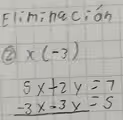 Eliminación
② x (-3)
5x+2y=7
-3x-3y=5